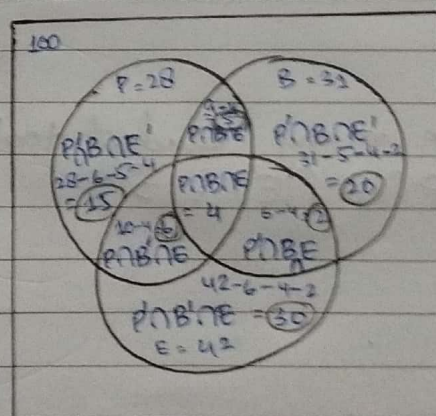 100
P = 28
B = 31
9-4
=5
P∩B∩E'
P∩B'∩E'
28-6-5-4
=15
P'∩B∩E'
31-5-4-2
=20
P∩B∩E
= 4
10-4=6
P∩B'∩E
6-4=2
P'∩B∩E
42-6-4-2
P'∩B'∩E =30
E = 42